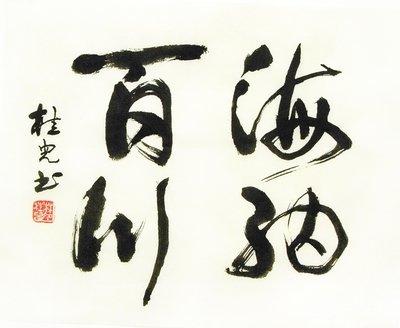 海納
百川
桂光书